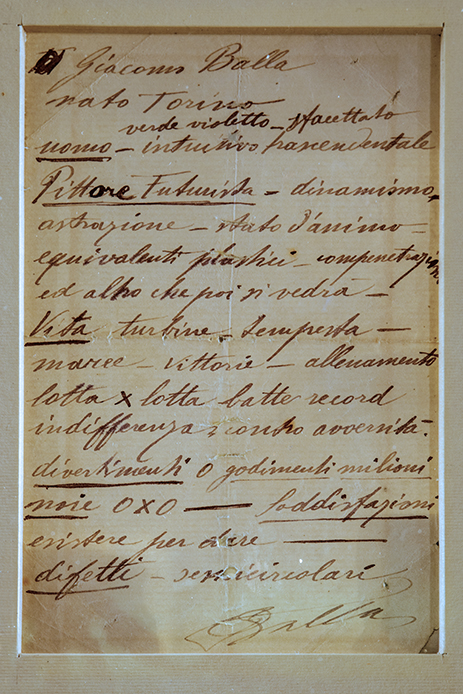 Giacomo Balla
nato Torino
verde violetto - sfacettato
uomo - intuitivo trascendentale
Pittore Futurista - dinamismo,
astrazione - stato d'animo -
equivalenti plastici - compenetrazioni
ed altro che poi si vedrà -
Vita turbine - tempesta -
maree - vittorie - allenamento
lotta x lotta batte record
indifferenza contro avversità.
divertimenti 0 godimenti milioni
noie 0 x 0 — Soddisfazioni
esistere per dare —
difetti - semicircolari
Balla